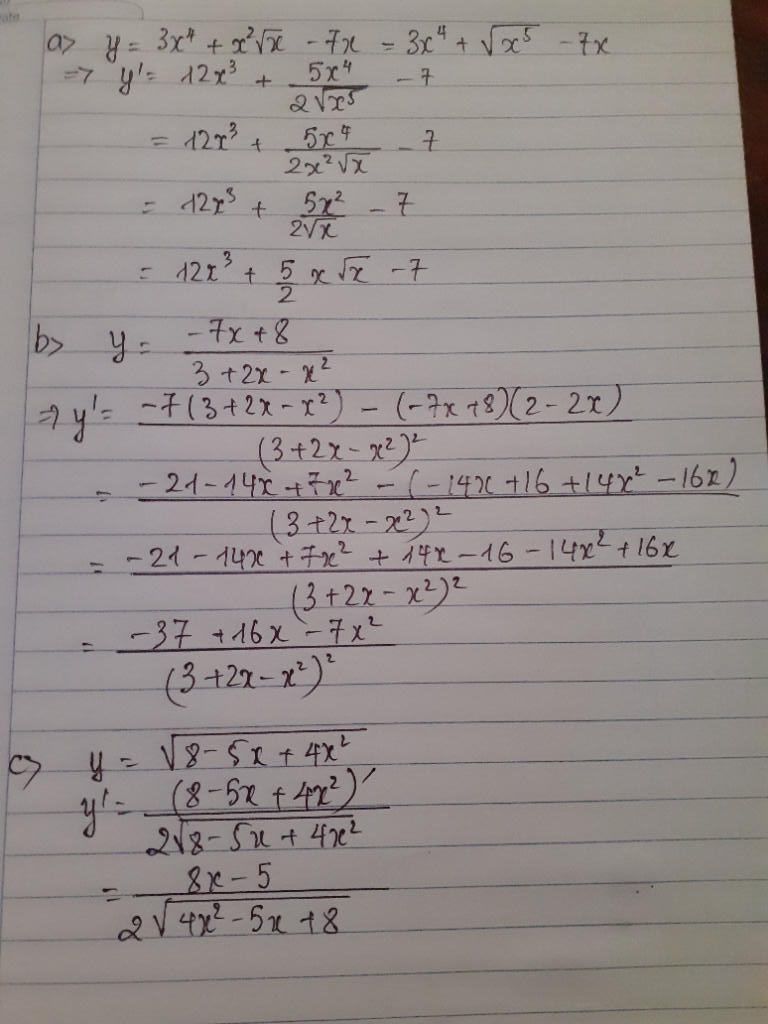 a> y = 3x⁴ + x²√x - 7x = 3x⁴ + √(x⁵) - 7x
=> y' = 12x³ + 5x⁴/(2√(x⁵)) - 7
= 12x³ + 5x⁴/(2x²√x) - 7
= 12x³ + 5x²/(2√x) - 7
= 12x³ + 5/2 x√x - 7
b> y = (-7x+8)/(3+2x-x²)
=> y' = (-7(3+2x-x²) - (-7x+8)(2-2x))/(3+2x-x²)²
= (-21-14x+7x² - (-14x+16+14x²-16x))/(3+2x-x²)²
= (-21-14x+7x²+14x-16-14x²+16x)/(3+2x-x²)²
= (-37+16x-7x²)/(3+2x-x²)²
c> y = √(8-5x+4x²)
y' = (8-5x+4x²)'/(2√(8-5x+4x²))
= (8x-5)/(2√(4x²-5x+8))